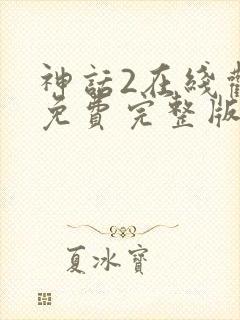 神話2在綫
免費完整版
夏冰寶